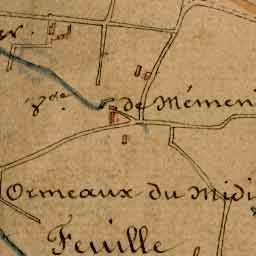 er.
de Mémen
Ormeaux du Midi
Feuille